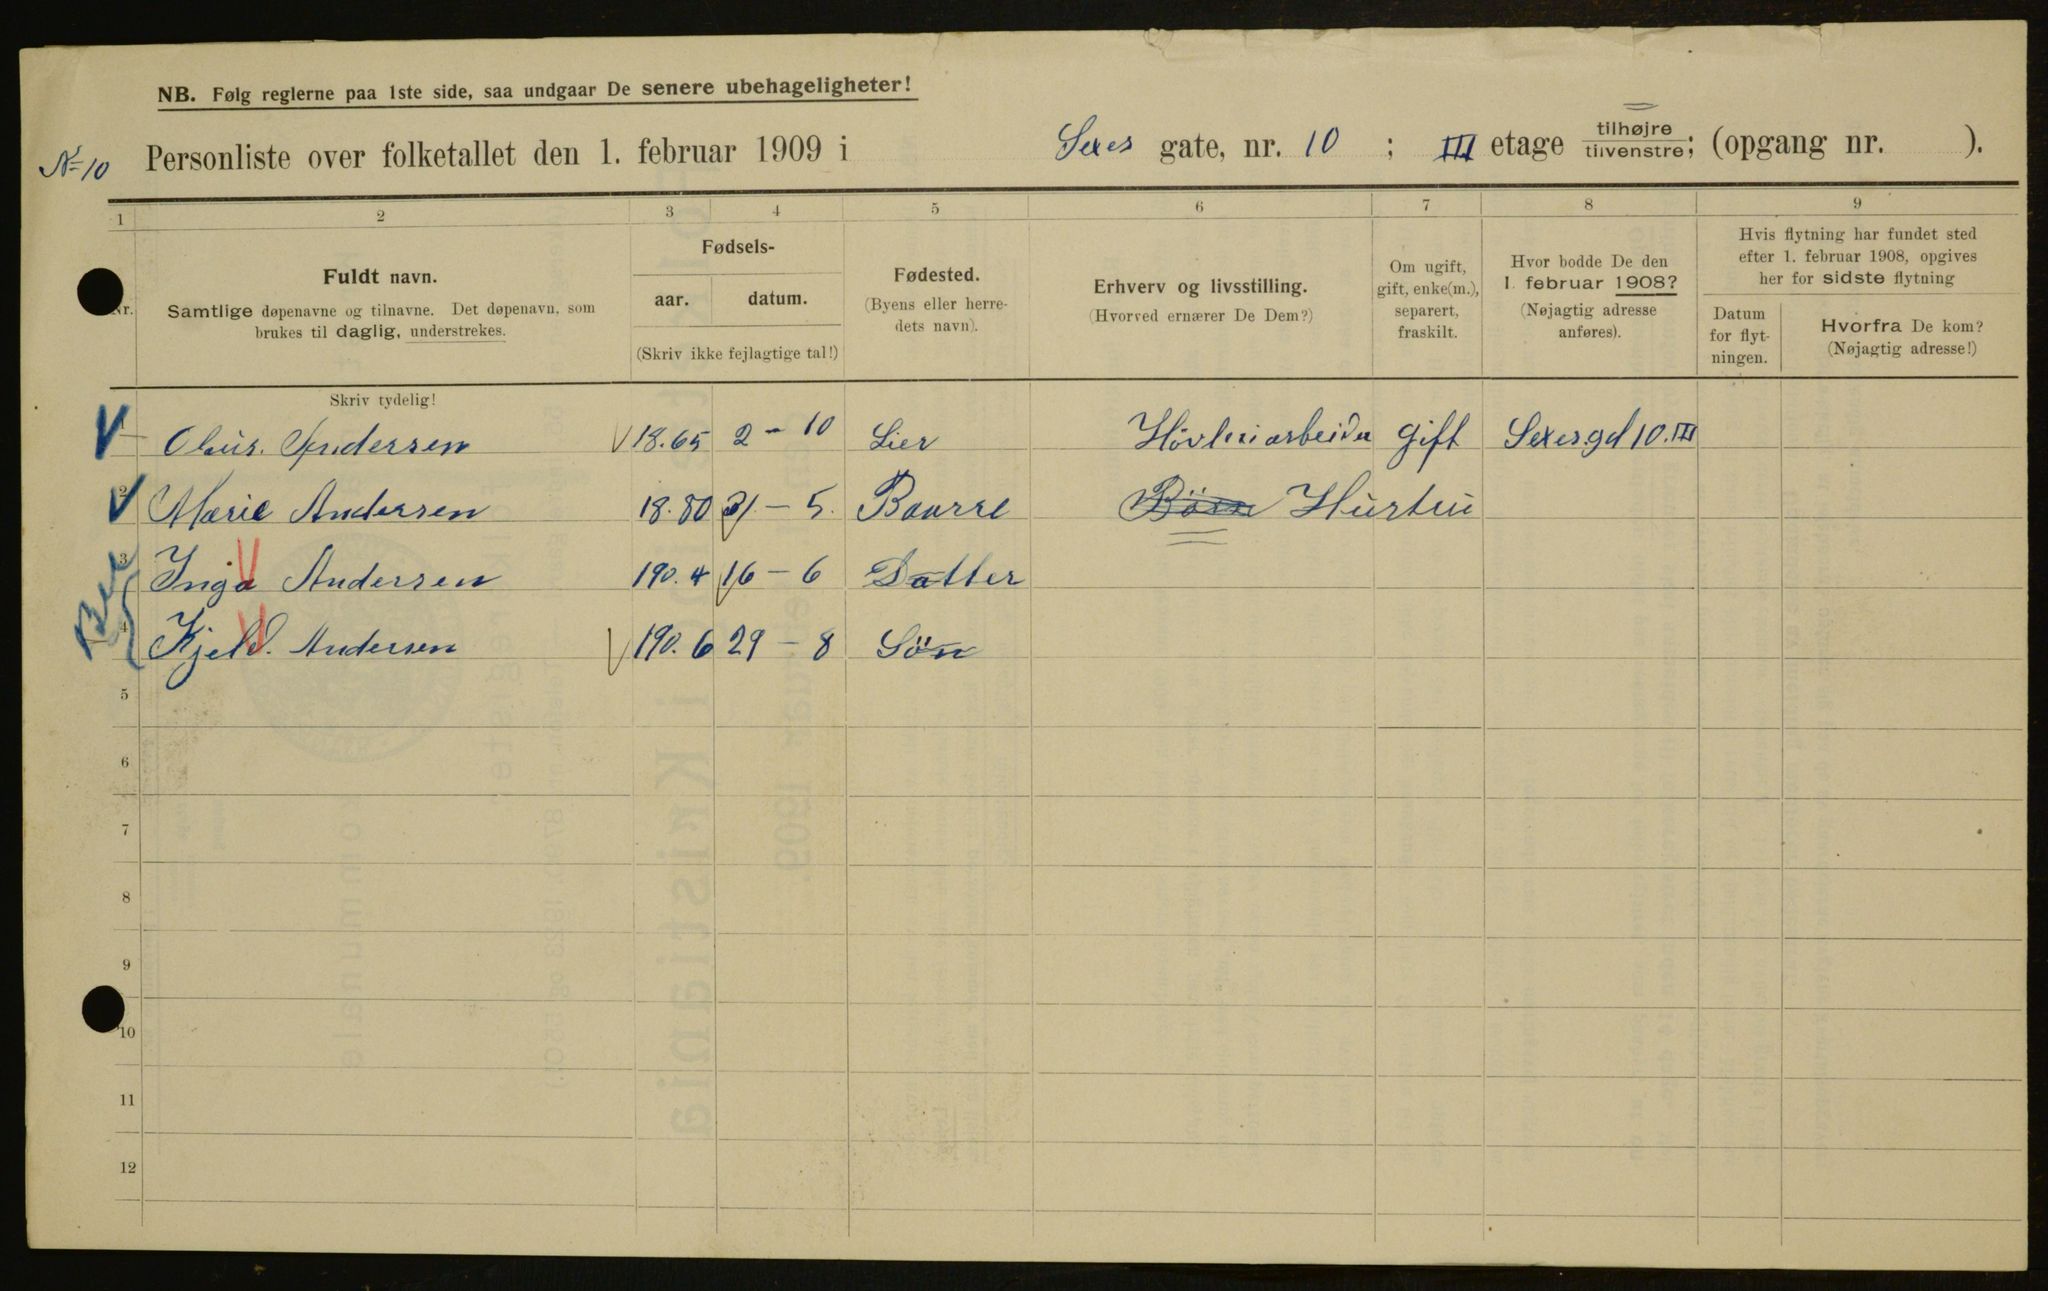 NB. Følg reglerne paa 1ste side, saa undgaar De senere ubehageligheter!
No 10 Personliste over folketallet den 1. februar 1909 i Sexes gate, nr. 10 ; III etage tilhøjre tilvenstre; (opgang nr. ).
1 2 3 4 5 6 7 8 9
Nr.
Fuldt navn.
Samtlige døpenavne og tilnavne. Det døpenavn, som
brukes til daglig, understrekes.
Fødsels-
aar. datum.
(Skriv ikke fejlagtige tal!)
Fødested.
(Byens eller herre-
dets navn).
Erhverv og livsstilling.
(Hvorved ernærer De Dem?)
Om ugift,
gift, enke(m.),
separert,
fraskilt.
Hvor bodde De den
1. februar 1908?
(Nøjagtig adresse
anføres).
Hvis flytning har fundet sted
efter 1. februar 1908, opgives
her for sidste flytning
Datum
for flyt-
ningen.
Hvorfra De kom?
(Nøjagtig adresse!)
Skriv tydelig!
Olaus. Andersen 18.65 2 - 10 Lier Hövleriarbeider gift Sexesgd 10. III
2 Marie Andersen 18.80 31 - 5. Börn Hustru
3 Inga Andersen 190.4 16 - 6 Datter
4 Kjeld. Andersen 190.6 29 - 8 Sön
5
6
7
8
9
10
11
12